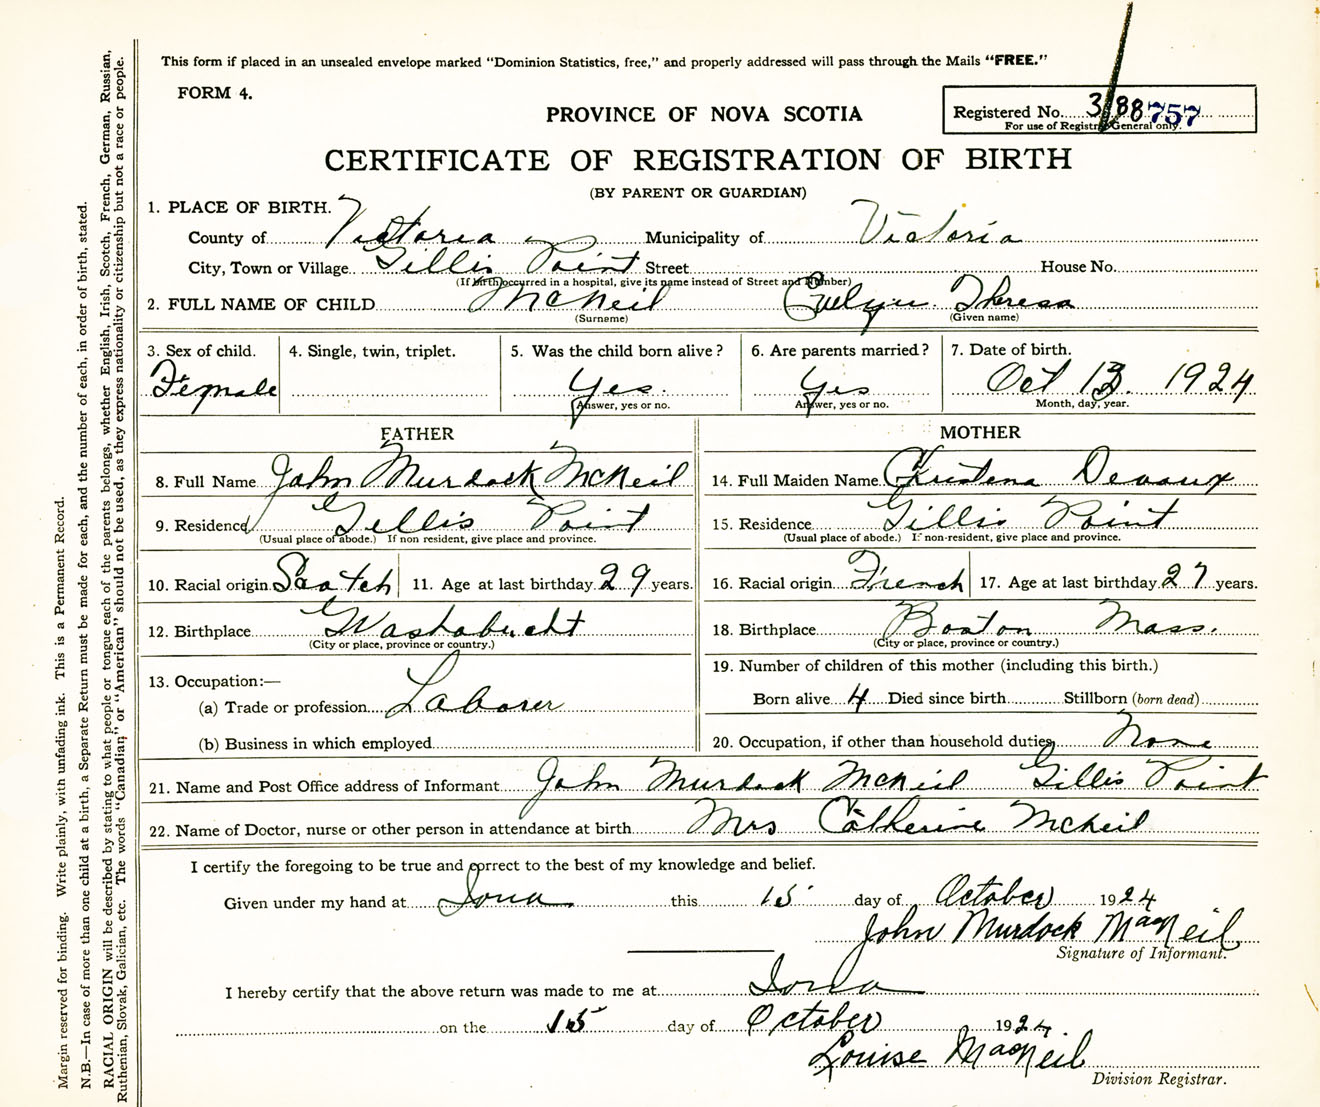 This form if placed in an unsealed envelope marked "Dominion Statistics, free," and properly addressed will pass through the Mails "FREE."
FORM 4.
PROVINCE OF NOVA SCOTIA
Registered No. 3188 757
For use of Registrar General only.
CERTIFICATE OF REGISTRATION OF BIRTH
(BY PARENT OR GUARDIAN)
1. PLACE OF BIRTH.
County of Victoria Municipality of Victoria
City, Town or Village Gillis Point Street House No.
(If birth occurred in a hospital, give its name instead of Street and Number)
2. FULL NAME OF CHILD McNeil Evelyn Theresa
(Surname) (Given name)
3. Sex of child. 4. Single, twin, triplet. 5. Was the child born alive? 6. Are parents married? 7. Date of birth.
Female Yes. Yes Oct 13 1924
Answer, yes or no. Answer, yes or no. Month, day, year.
FATHER MOTHER
8. Full Name John Murdock McNeil 14. Full Maiden Name Christena Devaux
9. Residence Gillis Point 15. Residence Gillis Point
(Usual place of abode.) If non resident, give place and province. (Usual place of abode.) If non-resident, give place and province.
10. Racial origin Scotch 11. Age at last birthday 29 years. 16. Racial origin French 17. Age at last birthday 27 years.
12. Birthplace Washabucht 18. Birthplace Boston Mass.
(City or place, province or country.) (City or place, province or country.)
13. Occupation:— 19. Number of children of this mother (including this birth.)
(a) Trade or profession Laborer Born alive 4 Died since birth Stillborn (born dead)
(b) Business in which employed 20. Occupation, if other than household duties None
21. Name and Post Office address of Informant John Murdock McNeil Gillis Point
22. Name of Doctor, nurse or other person in attendance at birth Mrs Catherine McNeil
I certify the foregoing to be true and correct to the best of my knowledge and belief.
Given under my hand at Iona this 15 day of October 1924
John Murdock MacNeil
Signature of Informant.
I hereby certify that the above return was made to me at Iona
on the 15 day of October 1924
Louise MacNeil
Division Registrar.
Margin reserved for binding. Write plainly, with unfading ink. This is a Permanent Record.
N.B.—In case of more than one child at a birth, a Separate Return must be made for each, and the number of each, in order of birth, stated.
RACIAL ORIGIN will be described by stating to what people or tongue each of the parents belongs, whether English, Irish, Scotch, French, German, Russian,
Ruthenian, Slovak, Galician, etc. The words "Canadian," or "American" should not be used, as they express nationality or citizenship but not a race or people.